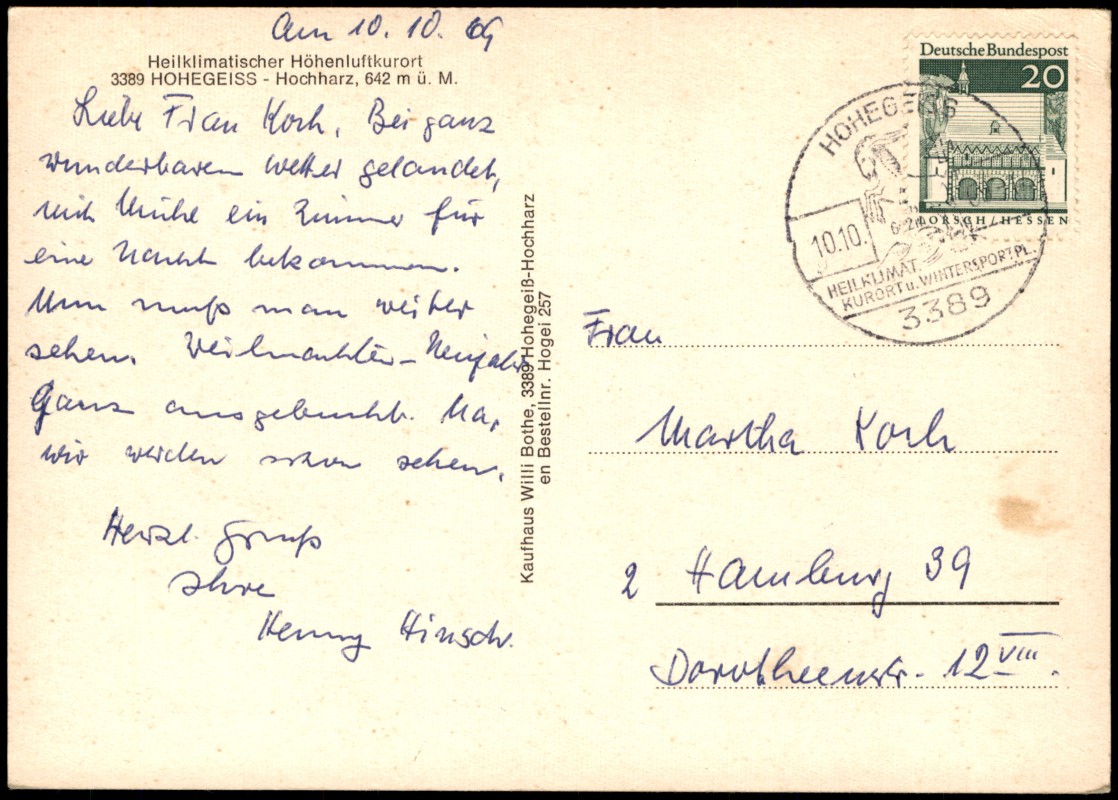 Am 10. 10. 69
Heilklimatischer Höhenluftkurort
3389 HOHEGEISS - Hochharz, 642 m ü. M.
Liebe Frau Koch, Bei ganz
wunderbarem Wetter gelandet,
mit Mühe ein Zimmer für
eine Nacht bekommen.
Nun muß man weiter
sehen. Weihnachten - Neujahr
Ganz ausgebucht. Na,
wir werden schon sehen.
Herzl. Gruß
Ihre
Henny Hinsch.
Kaufhaus Willi Bothe, 3389 Hohegeiß-Hochharz
en Bestellnr. Hogei 257
Deutsche Bundespost
20
LORSCH/HESSEN
HOHEGEISS
10.10.
642m
HEILKLIMAT.
KURORT u. WINTERSPORTPL.
3389
Frau
Martha Koch
2 Hamburg 39
Dorotheenstr. 12 VIII.